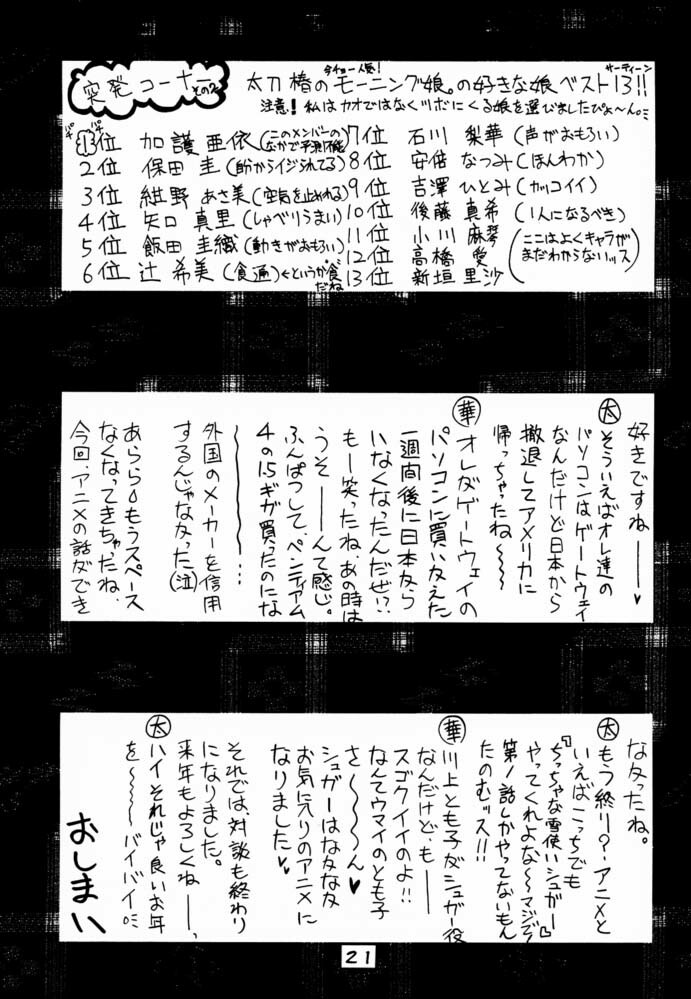 突発コーナー その2
今チョー人気!
サーティーン
太刀椿のモーニング娘。の好きな娘ベスト13!!
注意! 私はカオではなくツボにくる娘を選びましたぴょ〜ん。
パギ パギ
1位 加護亜依(このメンバーのなかで予測不能)
2位 保田 圭(自分からイジられてる)
3位 紺野 あさ美(空気を止めれる)
4位 矢口 真里(しゃべりうまい)
5位 飯田 圭織(動きがおもろい)
6位 辻 希美(食遍)←というか食だね
7位 石川 梨華(声がおもろい)
8位 安倍 なつみ(ほんわか)
9位 吉澤 ひとみ(カッコイイ)
10位 後藤 真希(1人になるべき)
11位 小川 麻琴
12位 高橋 愛
13位 新垣 里沙
(ここはよくキャラがまだわからないッス)
好きですね───♥
太 そういえばオレ達の
パソコンはゲートウェイ
なんだけど日本から
撤退してアメリカに
帰っちゃったね〜〜
華 オレがゲートウェイの
パソコンに買いかえた
一週間後に日本から
いなくなったんだぜ!?
もー笑ったね、あの時は
うそ──んて感じ。
ふんぱつして、ペンティアム
4の1.5ギガ買ったのにな
〜〜〜〜〜…
外国のメーカーを信用
するんじゃなかった(泣)
あらら。もうスペース
なくなってきちゃだね、
今回、アニメの話ができ
なかったね。
太 もう終り?アニメと
いえばこっちでも
『ちっちゃな雪使いシュガー』
やってくれよな〜〜マジで
第1話しかやってないもん
たのむッス!!
華 川上とも子がシュガー役
なんだけども──
スゴクイイのよ!!
なんてウマイのとも子
さ〜〜〜ん♥
シュガーはなかなか
お気に入りのアニメに
なりました♥♥
それでは、対談も終わり
になりました。
来年もよろしくね──、
太 ハイそれじゃ良いお年
を〜〜〜バイバイ
おしまい
21